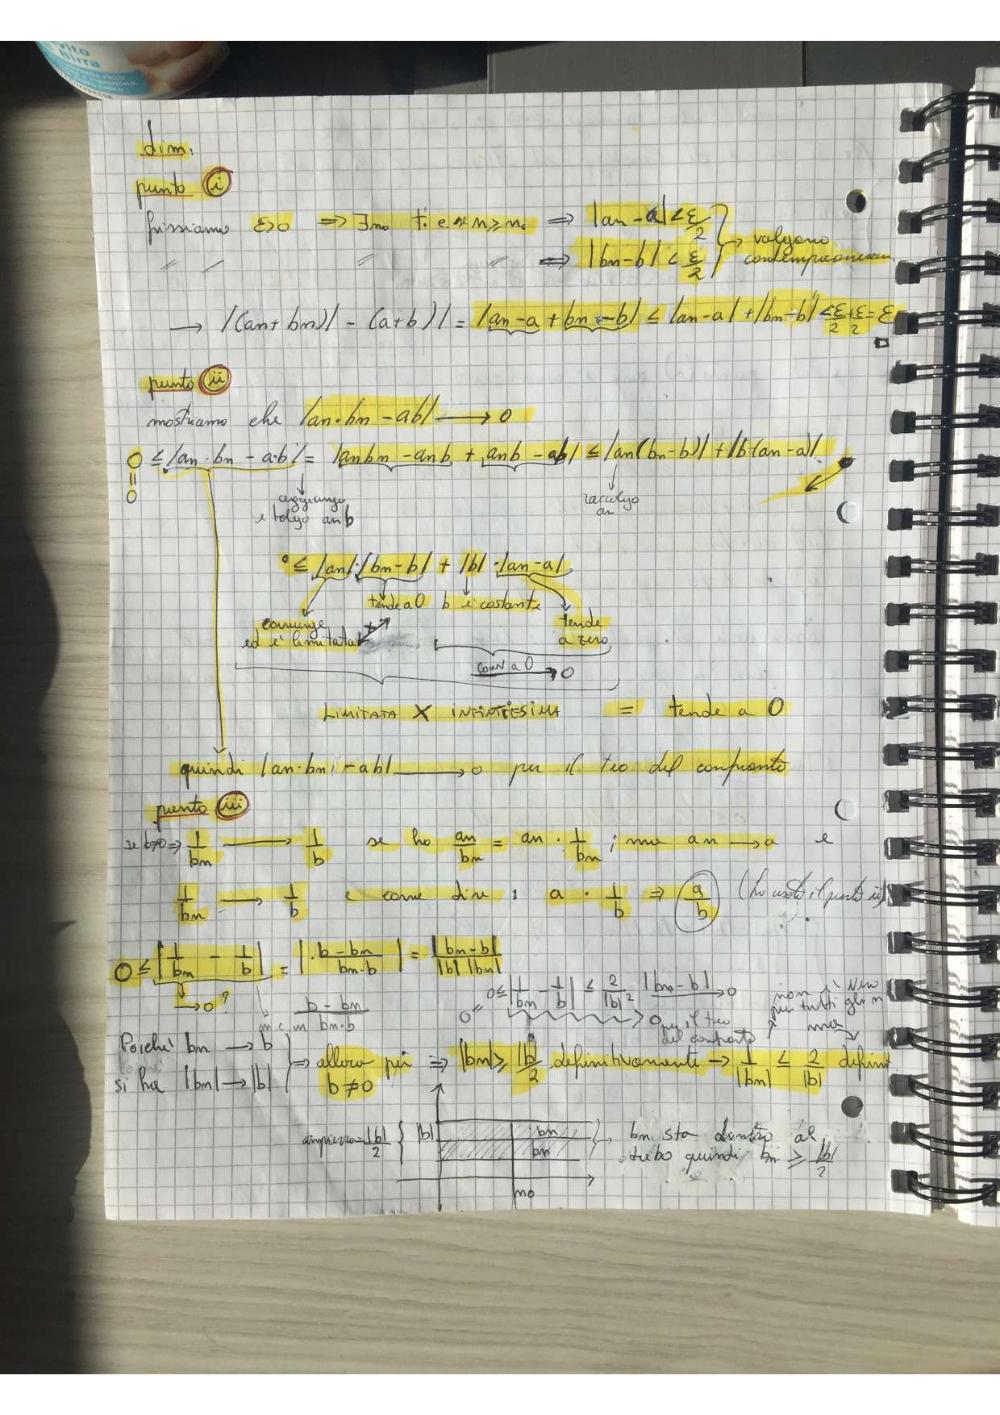 vito
birra
dim.
punto i
fissiamo ε>0 ⇒ ∃n₀ t. c. se n≥n₀ ⇒ |an - a| < ε/2
valgono
⇒ |bn - b| < ε/2
→ |(an + bn)| - (a+b)| = |an - a + bn - b| ≤ |an - a| + |bn - b| < ε/2 + ε/2 = ε
punto ii
mostriamo che |an · bn - ab| → 0
0 ≤ |an · bn - a·b| = |anbn - anb + anb - ab| ≤ |an(bn - b)| + |b·(an - a)|
0
aggiungo
e tolgo anb
raccolgo
an
0 ≤ |an|·|bn - b| + |b|·|an - a|
tende a 0 b è costante
converge
ed è limitata
tende
a zero
conv a 0 → 0
LIMITATA X INFINITESIMA = tende a 0
quindi |an·bn - ab| → 0 per il teo del confronto
punto iii
se b≠0 ⇒ 1/bn → 1/b se ho an/bn = an · 1/bn ; ma an → a e
1/bn → 1/b è come dire : a · 1/b ⇒ a/b (ho usato il punto ii)
0 ≤ |1/bn - 1/b| = |b - bn / bn·b| = |bn - b| / |b| |bn|
→ 0 ?
b - bn
m.c.m bn·b
0 ≤ |1/bn - 1/b| ≤ 2/|b|² |bn - b| → 0
0 → 0 per il teo
del confronto
non è vero
per tutti gli n
ma
Poiché bn → b
si ha |bn| → |b|
allora per
b ≠ 0
⇒ |bn| ≥ |b|/2 definitivamente → 1/|bn| ≤ 2/|b| defini
ampiezza = |b|/2 { |b|
bn
bn
n₀
bn sta dentro al
tubo quindi bn ≥ |b|/2